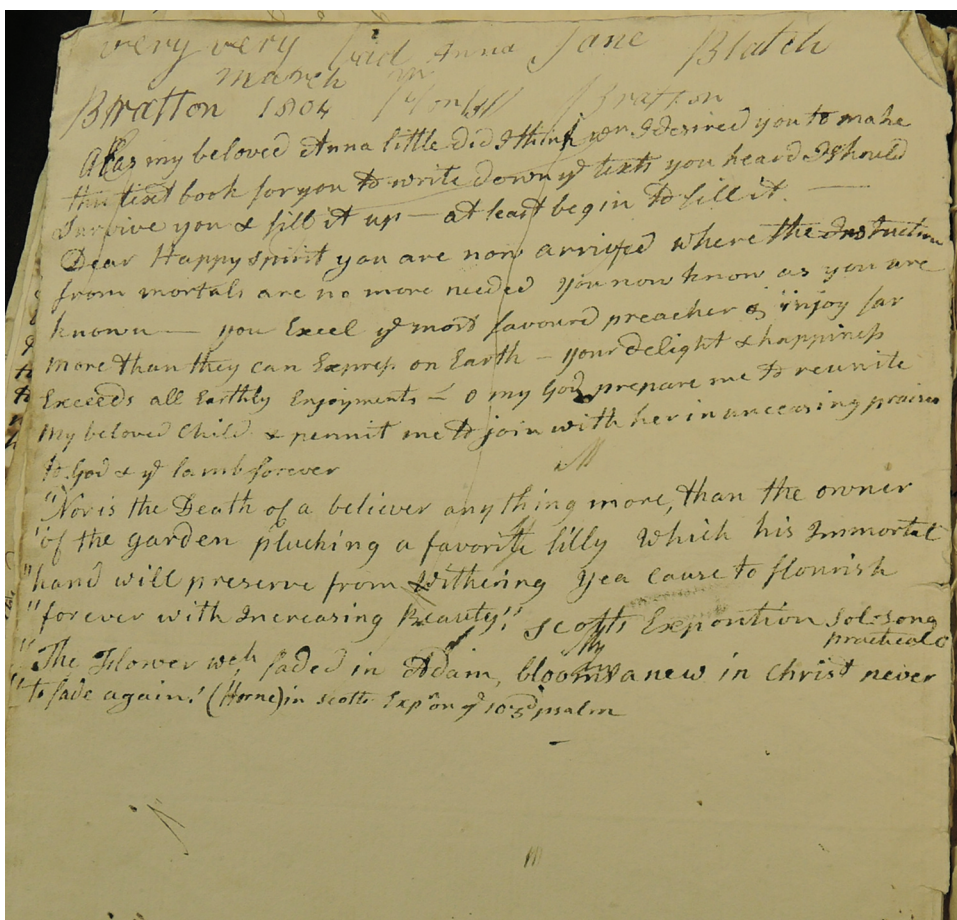 very very Anna Jane Blatch
march
Bratton 1804 Bratton
Alas my beloved Anna little did I think wn I desired you to make
this text book for you to write down ye texts you heard I should
survive you & fill it up — at least begin to fill it. —
Dear Happy spirit you are now arrived where the Instruction
from mortals are no more needed you now know as you are
known — you Excel ye most favoured preacher & injoy far
more than they can Express on Earth — your delight & happiness
Exceeds all Earthly Enjoyments — O my God prepare me to reunite
my beloved Child & permit me to join with her in unceasing praises
to God & ye lamb forever
"Nor is the Death of a believer anything more, than the owner
"of the garden plucking a favorite lilly which his Immortal
"hand will preserve from withering yea cause to flourish
"forever with Increasing Beauty!" scotts Exposition Sol-song
practical o
"The Flower wch faded in Adam, blooms anew in Christ never
"to fade again." (Horne) in scotts Expn on ye 103d psalm